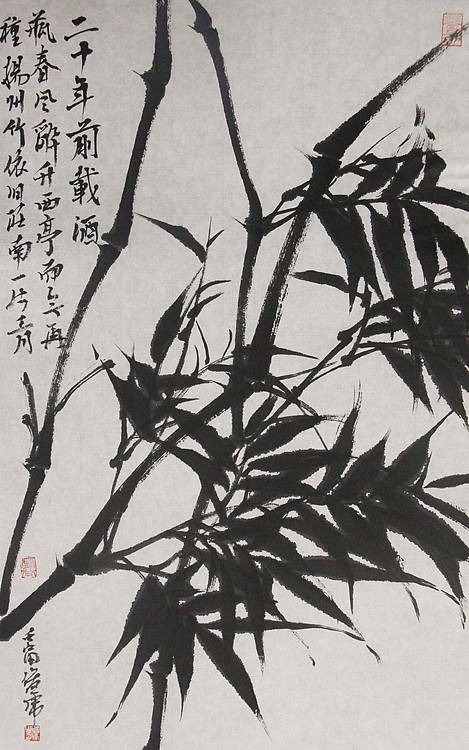 二十年前載酒
瓶春風醉西亭而今再
種揚州竹依旧淮南一片青